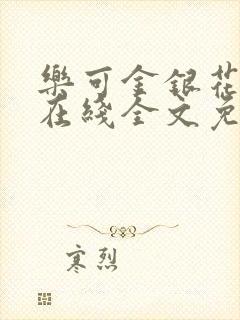 樂可金銀花
在綫全文免
寒烈